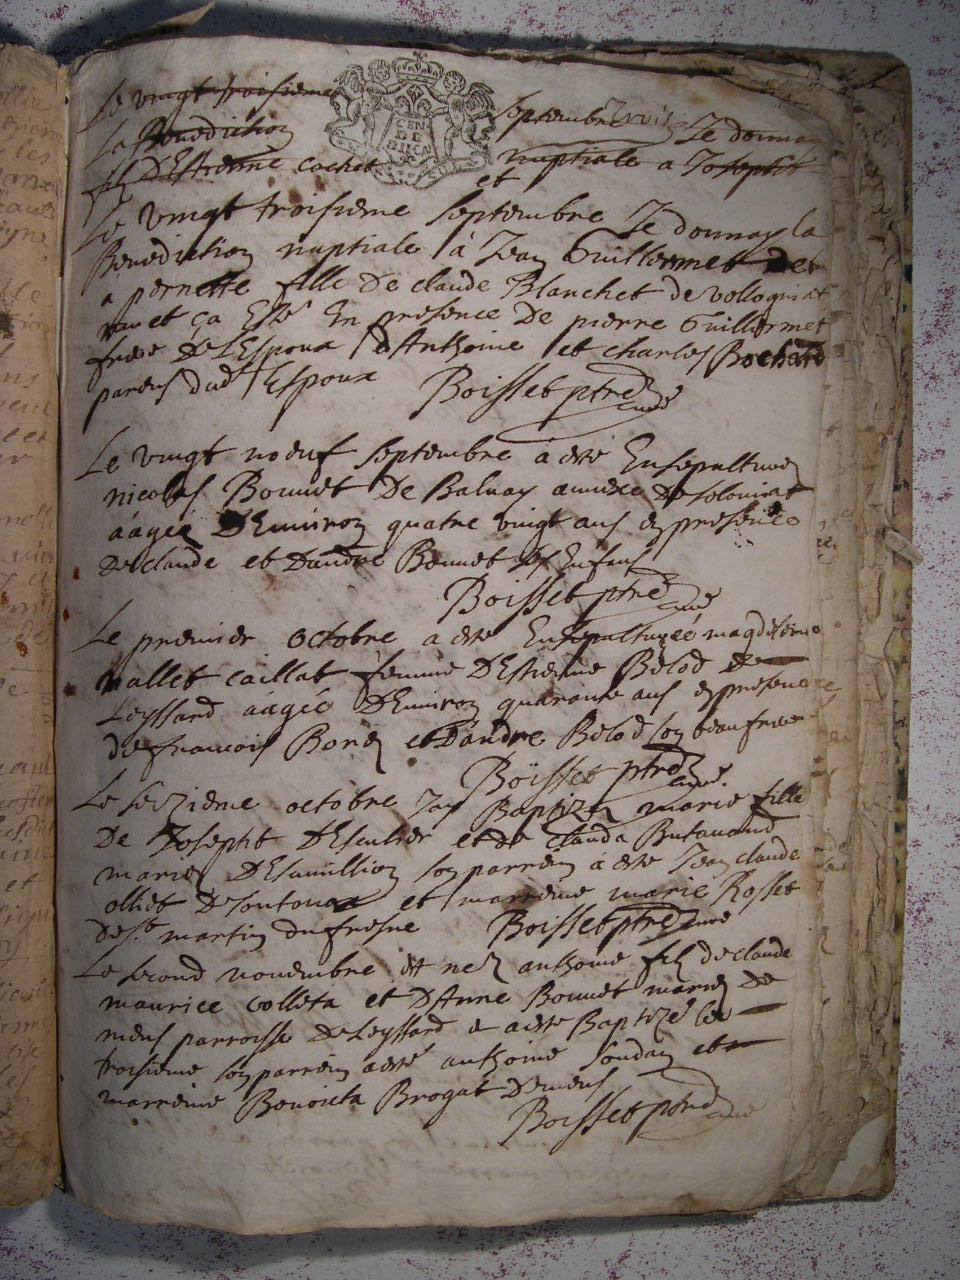 Le vingt troisieme septembre Je donnay
La Benediction nuptiale a Joseph
filz D'Estienne cochet et
GEN
DE
Le vingt troisieme septembre Je donnay la
Benediction nuptiale à Jean Guillermet de
a pernette fille De claude Blanchet de Vollogniat
et ça Esté En presence De pierre Guillermet
frere De L'Espoux d'Anthoine et charles Bochard
parens dud Espoux Boisset ptre curé
Le vingt noeuf septembre à esté Ensepulturez
nicolas Bonnet De Balvay annexe de soloniat
áagée D'Environ quatre vingt ans En presence
De claude et D'andre Bonnet ses Enfans
Boisset ptre curé
Le premier octobre a esté Ensepulturéé magdeleine
vallet caillat femme D'Estienne Belod De
Leyssard áagéé D'Environ quarante ans En presence
de francois et D'andre Belod son beau frere
Boisset ptre curé
Le seizieme octobre Jay Baptize marie fille
De Joseph D'Esculier et de Clauda Butavand
mariez son parrein à esté Jean claude
olliet De et marreine marie Rosset
de st martin du fresne Boisset ptre curé
Le second novembre est nez anthoine filz de claude
maurice colleta et D'Anne Bonnet mariez de
mens parroisse De Leyssard e a esté Baptizé le
troisieme son parrein a esté anthoine et
marreine Benoicta Brogat de mens
Boisset ptre curé